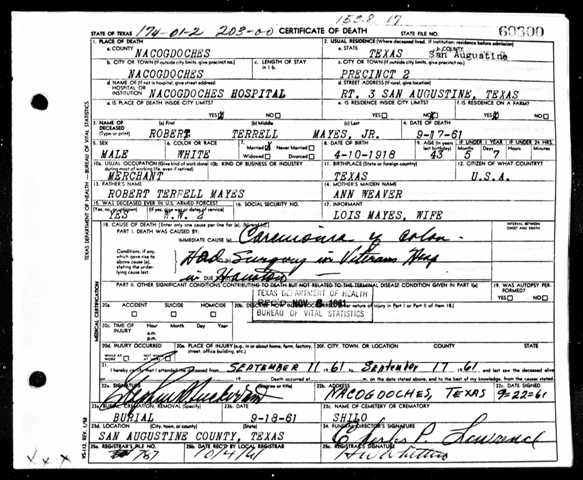 1538 17
STATE OF TEXAS 174-01-2 203-00 CERTIFICATE OF DEATH STATE FILE NO. 60300
1. PLACE OF DEATH 2. USUAL RESIDENCE (Where deceased lived. If institution: residence before admission)
a. COUNTY NACOGDOCHES a. STATE TEXAS b. COUNTY San Augustine
b. CITY OR TOWN (If outside city limits, give precinct no.) c. LENGTH OF STAY in 1 b. c. CITY OR TOWN (If outside city limits, give precinct no.)
NACOGDOCHES PRECINCT 2
d. NAME OF (If not in hospital, give street address) HOSPITAL OR INSTITUTION NACOGDOCHES HOSPITAL d. STREET ADDRESS (If rural, give location) RT. 3 SAN AUGUSTINE, TEXAS
e. IS PLACE OF DEATH INSIDE CITY LIMITS? e. IS RESIDENCE INSIDE CITY LIMITS? f. IS RESIDENCE ON A FARM?
YES NO YES NO YES NO
3. NAME OF DECEASED (Type or print) (a) First (b) Middle (c) Last 4. DATE OF DEATH
ROBERT TERRELL MAYES, JR. 9-17-61
5. SEX 6. COLOR OR RACE 7. Married Never Married Widowed Divorced 8. DATE OF BIRTH 9. AGE (In years last birthday) IF UNDER 1 YEAR IF UNDER 24 HRS.
MALE WHITE 4-10-1918 43 5 7
10a. USUAL OCCUPATION (Give kind of work done during most of working life, even if retired) 10b. KIND OF BUSINESS OR INDUSTRY 11. BIRTHPLACE (State or foreign country) 12. CITIZEN OF WHAT COUNTRY?
MERCHANT TEXAS U.S.A.
13. FATHER'S NAME 14. MOTHER'S MAIDEN NAME
ROBERT TERRELL MAYES ANN WEAVER
15. WAS DECEASED EVER IN U.S. ARMED FORCES? 16. SOCIAL SECURITY NO. 17. INFORMANT
YES W.W. 2 LOIS MAYES, WIFE
18. CAUSE OF DEATH [Enter only one cause per line for (a), (b), and (c).] INTERVAL BETWEEN ONSET AND DEATH
PART I. DEATH WAS CAUSED BY:
IMMEDIATE CAUSE (a) Carcinoma of colon
Conditions, if any, which gave rise to above cause (a), stating the underlying cause last. Had Surgery in Veterans Hosp
DUE in Houston
PART II. OTHER SIGNIFICANT CONDITIONS CONTRIBUTING TO DEATH BUT NOT RELATED TO THE TERMINAL DISEASE CONDITION GIVEN IN PART I (a) 19. WAS AUTOPSY PERFORMED?
YES NO
TEXAS DEPARTMENT OF HEALTH
REC'D NOV 8 1961
BUREAU OF VITAL STATISTICS
20a. ACCIDENT SUICIDE HOMICIDE
20c. TIME OF INJURY Hour Month Day Year
a.m.
p.m.
20d. INJURY OCCURRED 20e. PLACE OF INJURY (e.g., in or about home, farm, factory, street, office building, etc.) 20f. CITY, TOWN, OR LOCATION COUNTY STATE
WHILE AT WORK NOT WHILE AT WORK
21. I hereby certify that I attended the deceased from SEPTEMBER 11 1961, September 17 1961, and last saw the deceased alive
Death occurred at m. on the date stated above, and to the best of my knowledge, from the causes stated.
22a. SIGNATURE 22b. ADDRESS 22c. DATE SIGNED
NACOGDOCHES, TEXAS 9-22-61
23a. BURIAL, CREMATION, REMOVAL (Specify) 23b. DATE 23c. NAME OF CEMETERY OR CREMATORY
BURIAL 9-18-61 SHILO
23d. LOCATION (City, town, or county) (State) 24. FUNERAL DIRECTOR'S SIGNATURE
SAN AUGUSTINE COUNTY, TEXAS Charles P. Lawrence
25a. REGISTRAR'S FILE NO. 25b. DATE REC'D BY LOCAL REGISTRAR 25c. REGISTRAR'S SIGNATURE
787 10/4/61
TEXAS DEPARTMENT OF HEALTH—BUREAU OF VITAL STATISTICS
MEDICAL CERTIFICATION